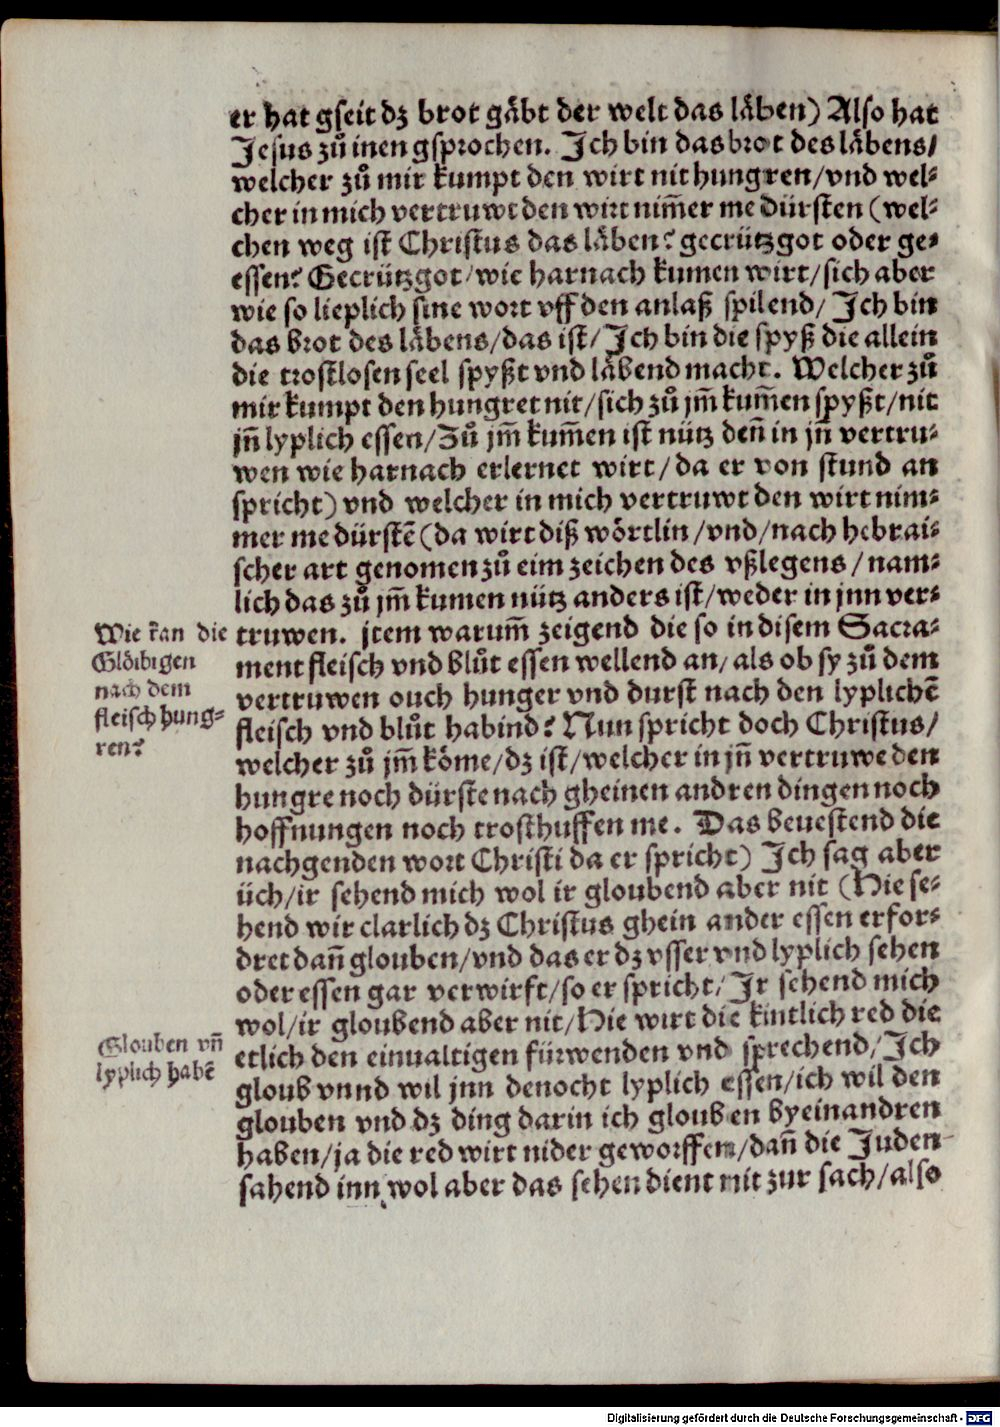 er hat gseit dz brot gäbt der welt das läben) Also hat
Jesus zů inen gsprochen. Ich bin das brot des läbens/
welcher zů mir kumpt den wirt nit hungren/vnd wel-
cher in mich vertruwt den wirt nim̃er me dürsten (wel-
chen weg ist Christus das läben? gecrützgot oder ge-
essen? Gecrützgot/wie harnach kumen wirt/sich aber
wie so lieplich sine wort vff den anlaß spilend/Ich bin
das brot des läbens/das ist/Ich bin die spyß die allein
die trostlosen seel spyßt vnd läbend macht. Welcher zů
mir kumpt den hungret nit/sich zů jm̃ kum̃en spyßt/nit
jñ lyplich essen/Zů jm̃ kum̃en ist nütz deñ in jñ vertru-
wen wie harnach erlernet wirt/da er von stund an
spricht) vnd welcher in mich vertruwt den wirt nim-
mer me dürstẽ (da wirt diß wörtlin/vnd/nach hebrai-
scher art genomen zů eim zeichen des vßlegens/nam-
lich das zů jm̃ kumen nütz anders ist/weder in jnn ver-
truwen. jtem warum̃ zeigend die so in disem Sacra-
ment fleisch vnd blůt essen wellend an/als ob sy zů dem
vertruwen ouch hunger vnd durst nach den lyplichẽ
fleisch vnd blůt habind? Nun spricht doch Christus/
welcher zů jm̃ köme/dz ist/welcher in jñ vertruwe den
hungre noch dürste nach gheinen andren dingen noch
hoffnungen noch trosthuffen me. Das beuestend die
nachgenden wort Christi da er spricht) Ich sag aber
üch/ir sehend mich wol ir gloubend aber nit (Hie se-
hend wir clarlich dz Christus ghein ander essen erfor-
dret dañ glouben/vnd das er dz vsser vnd lyplich sehen
oder essen gar verwirft/so er spricht/Ir sehend mich
wol/ir gloubend aber nit/Hie wirt die kintlich red die
etlich den einualtigen fürwenden vnd sprechend/Ich
gloub vnnd wil jnn denocht lyplich essen/ich wil den
glouben vnd dz ding darin ich glouben byeinandren
haben/ja die red wirt nider geworffen/dañ die Juden
sahend inn wol aber das sehen dient nit zur sach/also
Wie kan die
Glöibigen
nach dem
fleisch hung-
ren?
Glouben vñ
lyplich habẽ
Digitalisierung gefördert durch die Deutsche Forschungsgemeinschaft - DFG